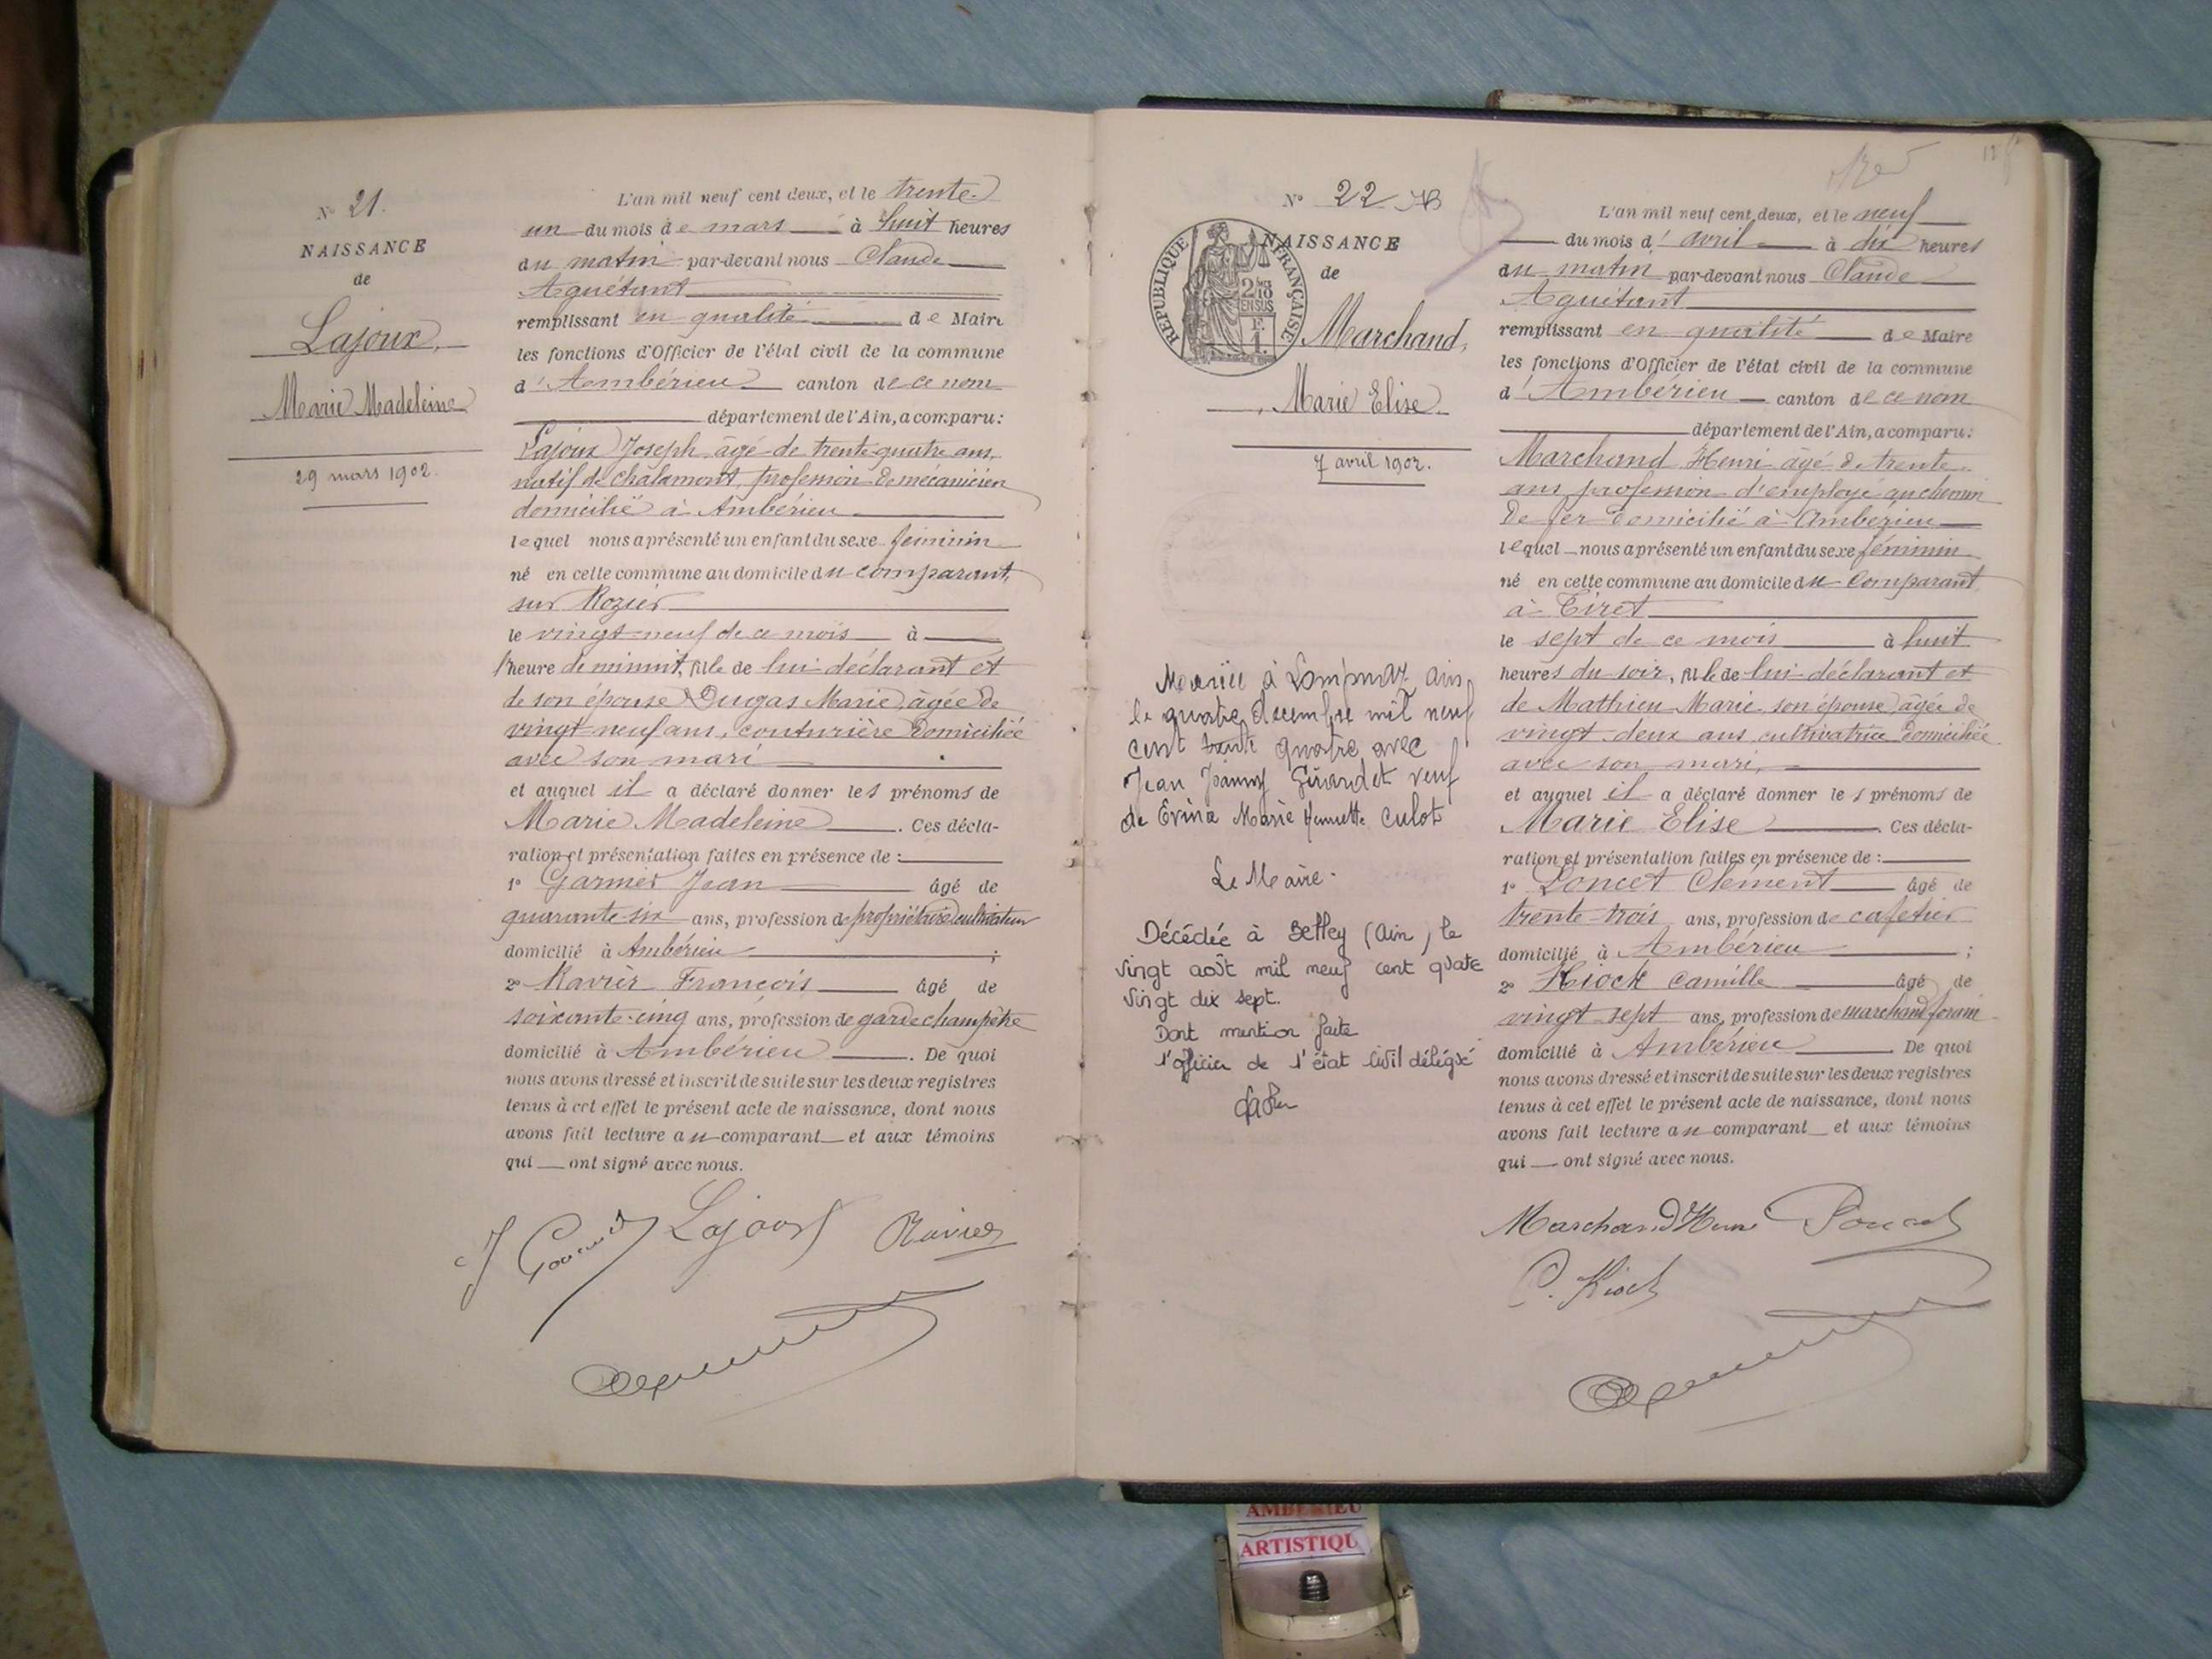 N° 21.
NAISSANCE
de
Lajoux,
Marie Madeleine
29 mars 1902.
L'an mil neuf cent deux, et le trente
un du mois de mars à huit heures
du matin par-devant nous Claude
Aguétant
remplissant en qualité de Maire
les fonctions d'Officier de l'état civil de la commune
d'Ambérieu canton de ce nom
département de l'Ain, a comparu:
Lajoux Joseph âgé de trente-quatre ans,
natif de Chalamont, profession de mécanicien
domicilié à Ambérieu
lequel nous a présenté un enfant du sexe féminin
né en cette commune au domicile du comparant,
sur Rozier
le vingt-neuf de ce mois à
l'heure de minuit, fille de lui déclarant et
de son épouse Dugas Marie, âgée de
vingt-neuf ans, couturière domiciliée
avec son mari
et auquel il a déclaré donner les prénoms de
Marie Madeleine. Ces décla-
ration et présentation faites en présence de :
1° Garnier Jean âgé de
quarante-six ans, profession de propriétaire cultivateur
domicilié à Ambérieu ;
2° Ravier François âgé de
soixante-cinq ans, profession de garde champêtre
domicilié à Ambérieu. De quoi
nous avons dressé et inscrit de suite sur les deux registres
tenus à cet effet le présent acte de naissance, dont nous
avons fait lecture au comparant et aux témoins
qui ont signé avec nous.
J Lajoux Ravier
N° 22
RÉPUBLIQUE FRANÇAISE
NAISSANCE
de
Marchand,
Marie Elise
7 avril 1902.
Mariée à Lompnaz ain
le quatre décembre mil neuf
cent trente quatre avec
Jean Joanny Girardet veuf
de Erina Marie Henriette Culot
Le Maire.
Décédée à Belley (Ain) le
vingt août mil neuf cent quatre
vingt dix sept.
Dont mention faite
l'officier de l'état civil délégué
L'an mil neuf cent deux, et le neuf
du mois d'avril à dix heures
du matin par-devant nous Claude
Aguétant
remplissant en qualité de Maire
les fonctions d'Officier de l'état civil de la commune
d'Ambérieu canton de ce nom
département de l'Ain, a comparu:
Marchand Henri âgé de trente
ans profession d'employé au chemin
de fer domicilié à Ambérieu
lequel nous a présenté un enfant du sexe féminin
né en cette commune au domicile du comparant,
à Tiret
le sept de ce mois à huit
heures du soir, fille de lui déclarant et
de Mathieu Marie son épouse, âgée de
vingt deux ans cultivatrice domiciliée
avec son mari,
et auquel il a déclaré donner les prénoms de
Marie Elise. Ces décla-
ration et présentation faites en présence de :
1° Poncet Clément âgé de
trente-trois ans, profession de cafetier
domicilié à Ambérieu ;
2° Kiock Camille âgé de
vingt-sept ans, profession de marchand forain
domicilié à Ambérieu. De quoi
nous avons dressé et inscrit de suite sur les deux registres
tenus à cet effet le présent acte de naissance, dont nous
avons fait lecture au comparant et aux témoins
qui ont signé avec nous.
Marchand Henri Poncet
C. Kiock
AMBERIEU
ARTISTIQU